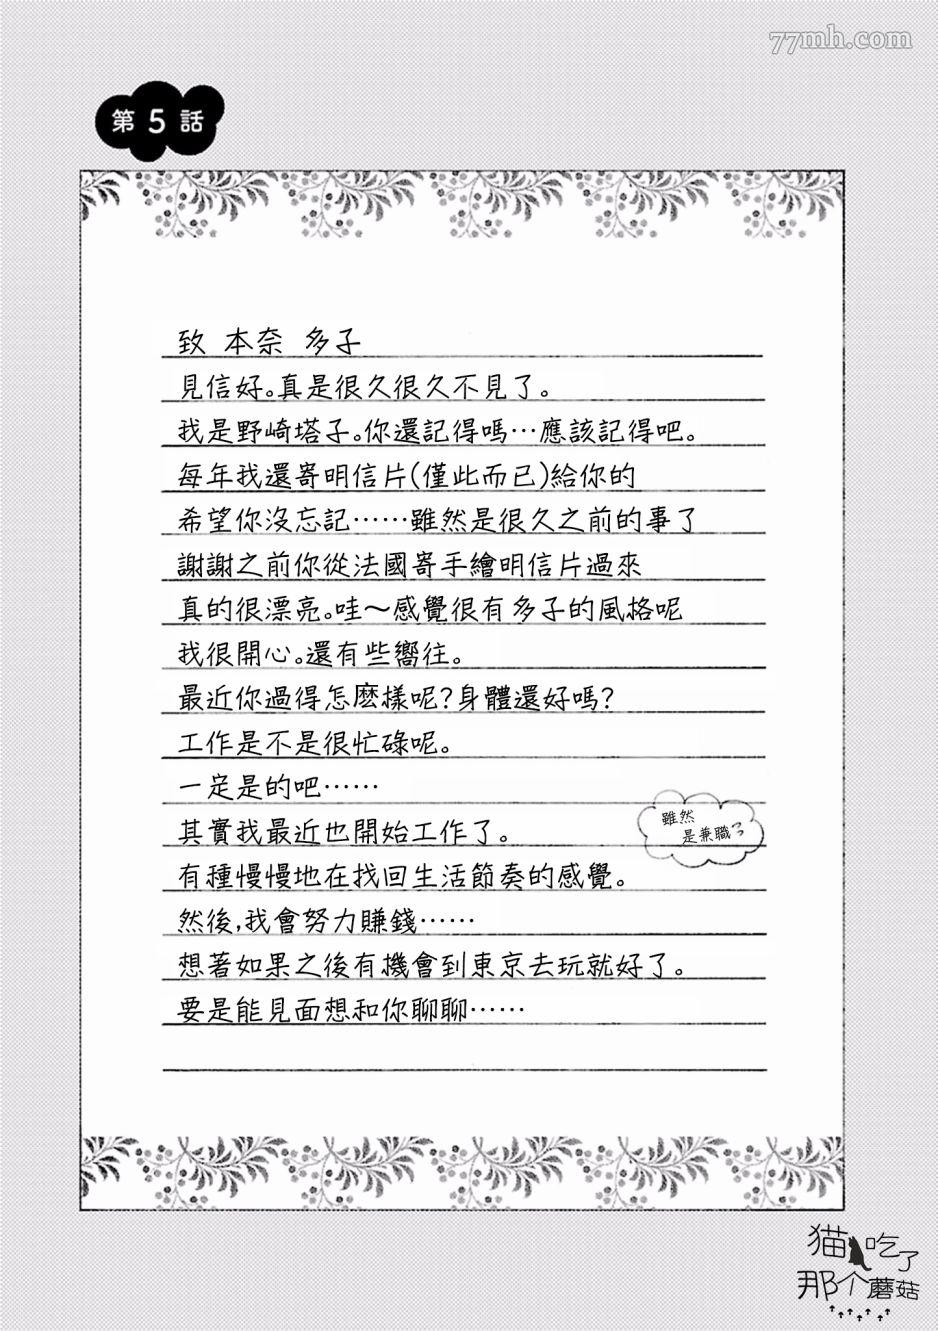 77mh.com
第5話
致 本奈 多子
見信好。真是很久很久不見了。
我是野崎塔子。你還記得嗎…應該記得吧。
每年我還寄明信片(僅此而已)給你的
希望你沒忘記……雖然是很久之前的事了
謝謝之前你從法國寄手繪明信片過來
真的很漂亮。哇～感覺很有多子的風格呢
我很開心。還有些嚮往。
最近你過得怎麼樣呢？身體還好嗎？
工作是不是很忙碌呢。
一定是的吧……
其實我最近也開始工作了。
雖然
是兼職了
有種慢慢地在找回生活節奏的感覺。
然後,我會努力賺錢……
想著如果之後有機會到東京去玩就好了。
要是能見面想和你聊聊……
猫吃了
那个蘑菇